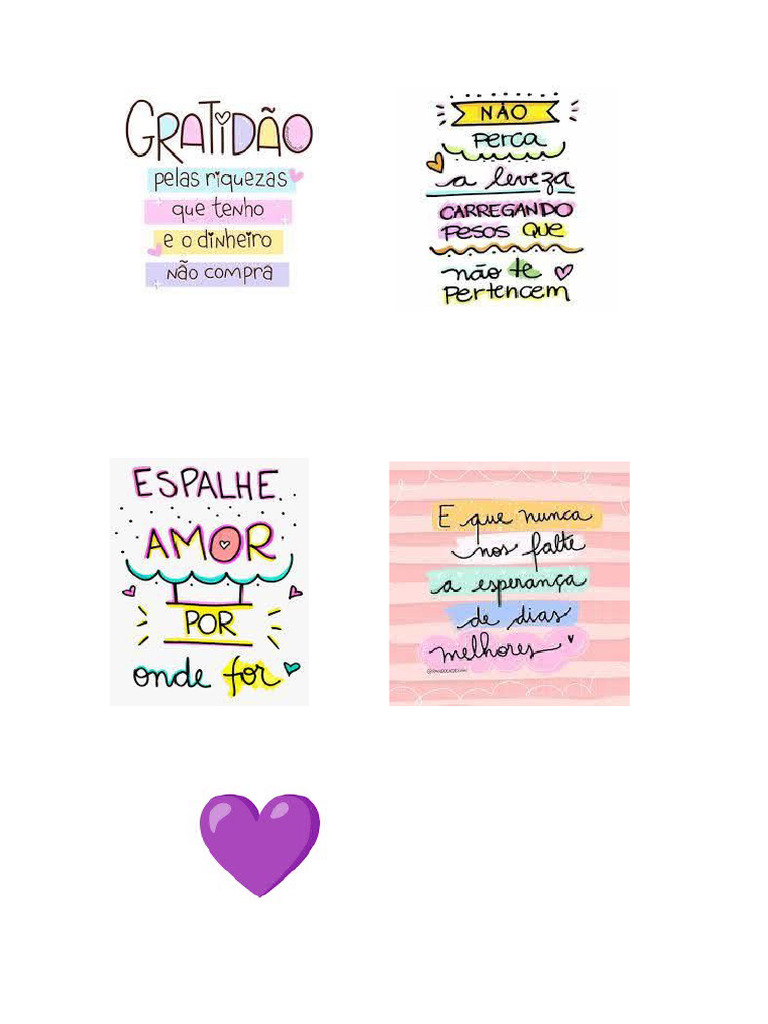 GRATIDÃO
pelas riquezas
que tenho
e o dinheiro
não compra
NÃO
perca
a leveza
CARREGANDO
PESOS QUE
não te
Pertencem
ESPALHE
AMOR
POR
onde for
E que nunca
nos falte
a esperança
de dias
melhores